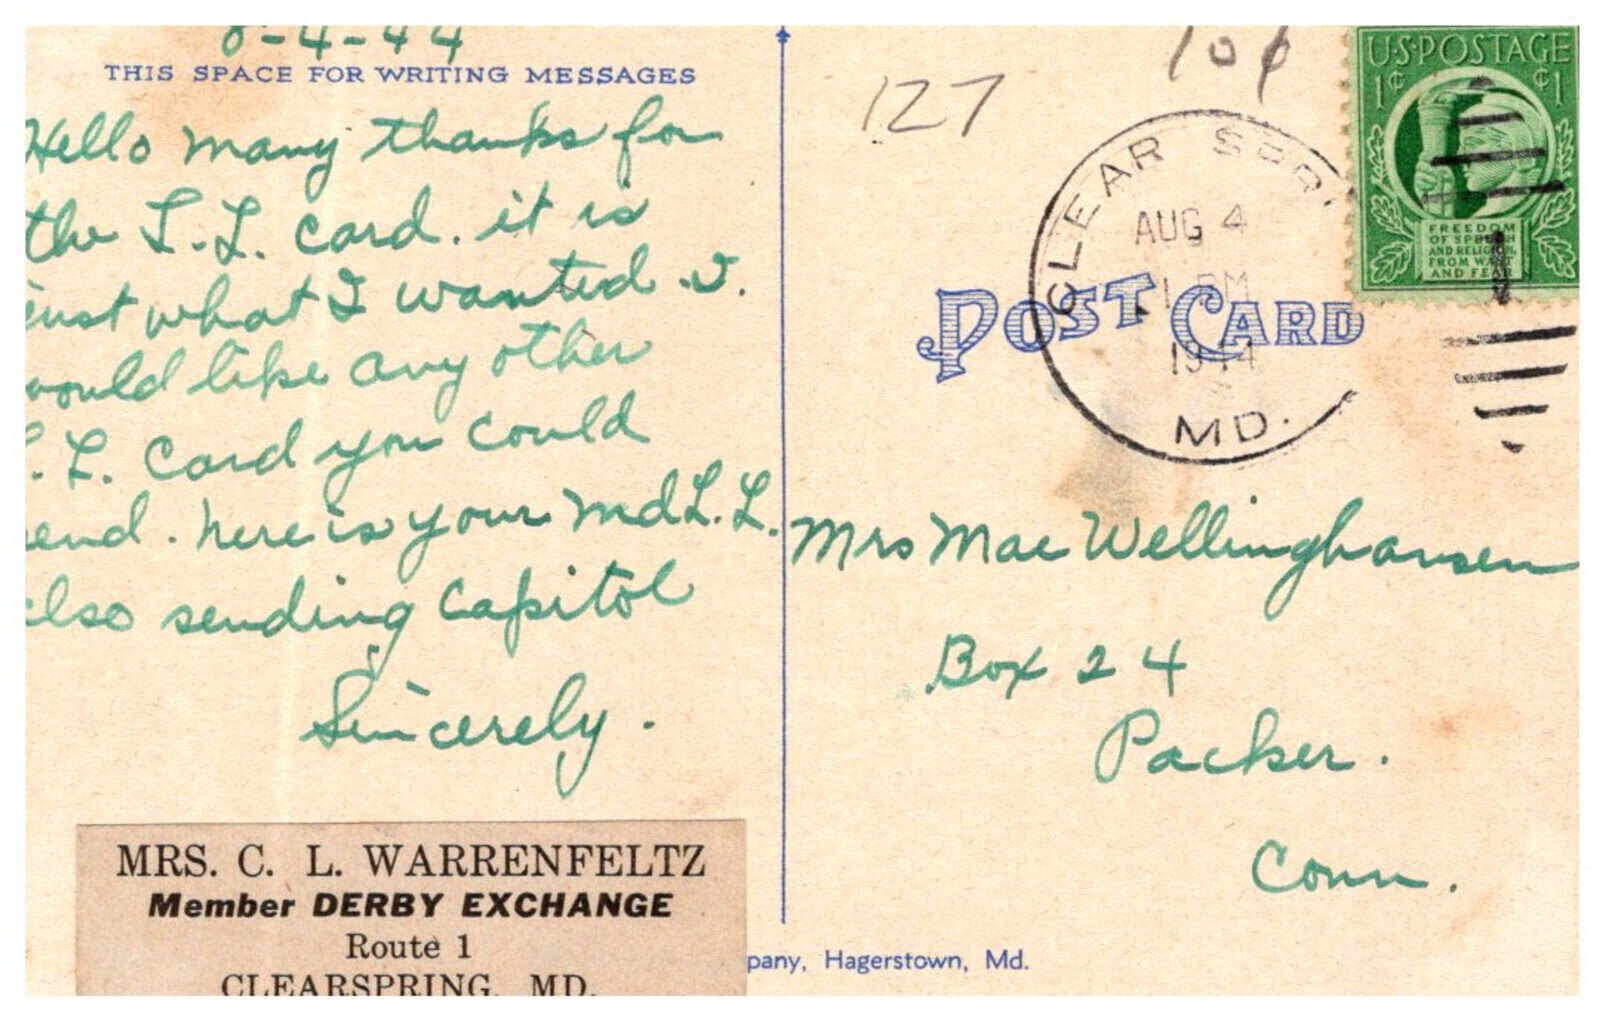 8-4-44
THIS SPACE FOR WRITING MESSAGES
Hello many thanks for
the L.L. card. it is
just what I wanted. I.
would like any other
L. L. Card you could
send. here is your Md L.L.
also sending Capitol
Sincerely.
MRS. C. L. WARRENFELTZ
Member DERBY EXCHANGE
Route 1
CLEARSPRING, MD.
127
10¢
CLEAR SPR
AUG 4
1 PM
1944
MD.
U.S. POSTAGE
1¢ ¢1
FREEDOM
OF SPEECH
AND RELIGION,
FROM WANT
AND FEAR
POST CARD
Mrs Mae Wellinghausen
Box 24
Packer.
Conn.
pany, Hagerstown, Md.